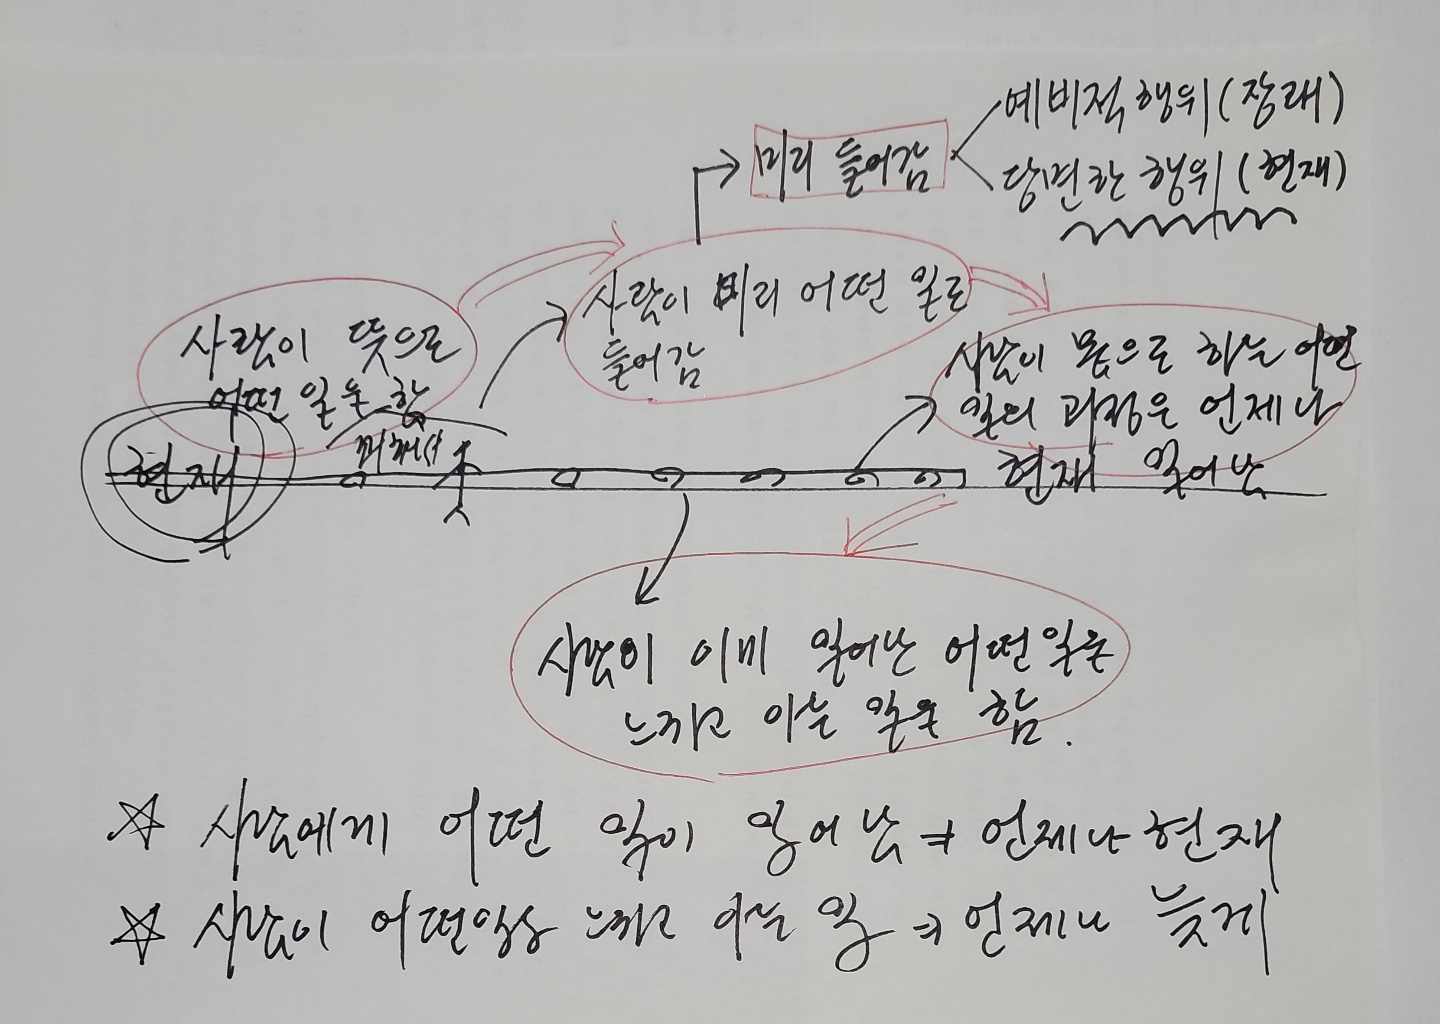 예비적 행위 (장래)
미리 들어감
당면한 행위 (현재)
사람이 미리 어떤 일로
들어감
사람이 뜻으로
어떤 일을 함
사람이 몸으로 하는 어떤
일의 과정은 언제나
현재 일어남
현재
사람이 이미 일어난 어떤 일을
느끼고 아는 일을 함.
☆ 사람에게 어떤 일이 일어남 ⇒ 언제나 현재
☆ 사람이 어떤 일을 느끼고 아는 일 ⇒ 언제나 늦게